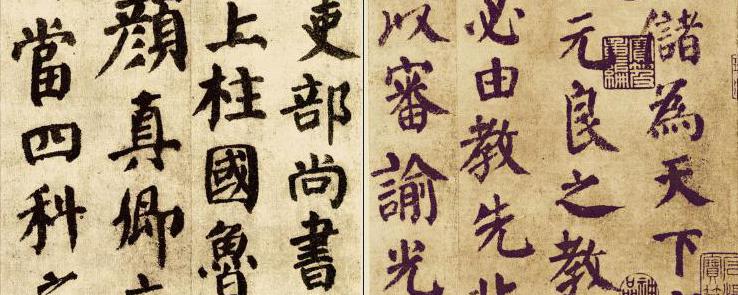 儲為天下
元良之教
必由教先
以審諭光
吏部尚書
上柱國魯
顏真卿
當四科